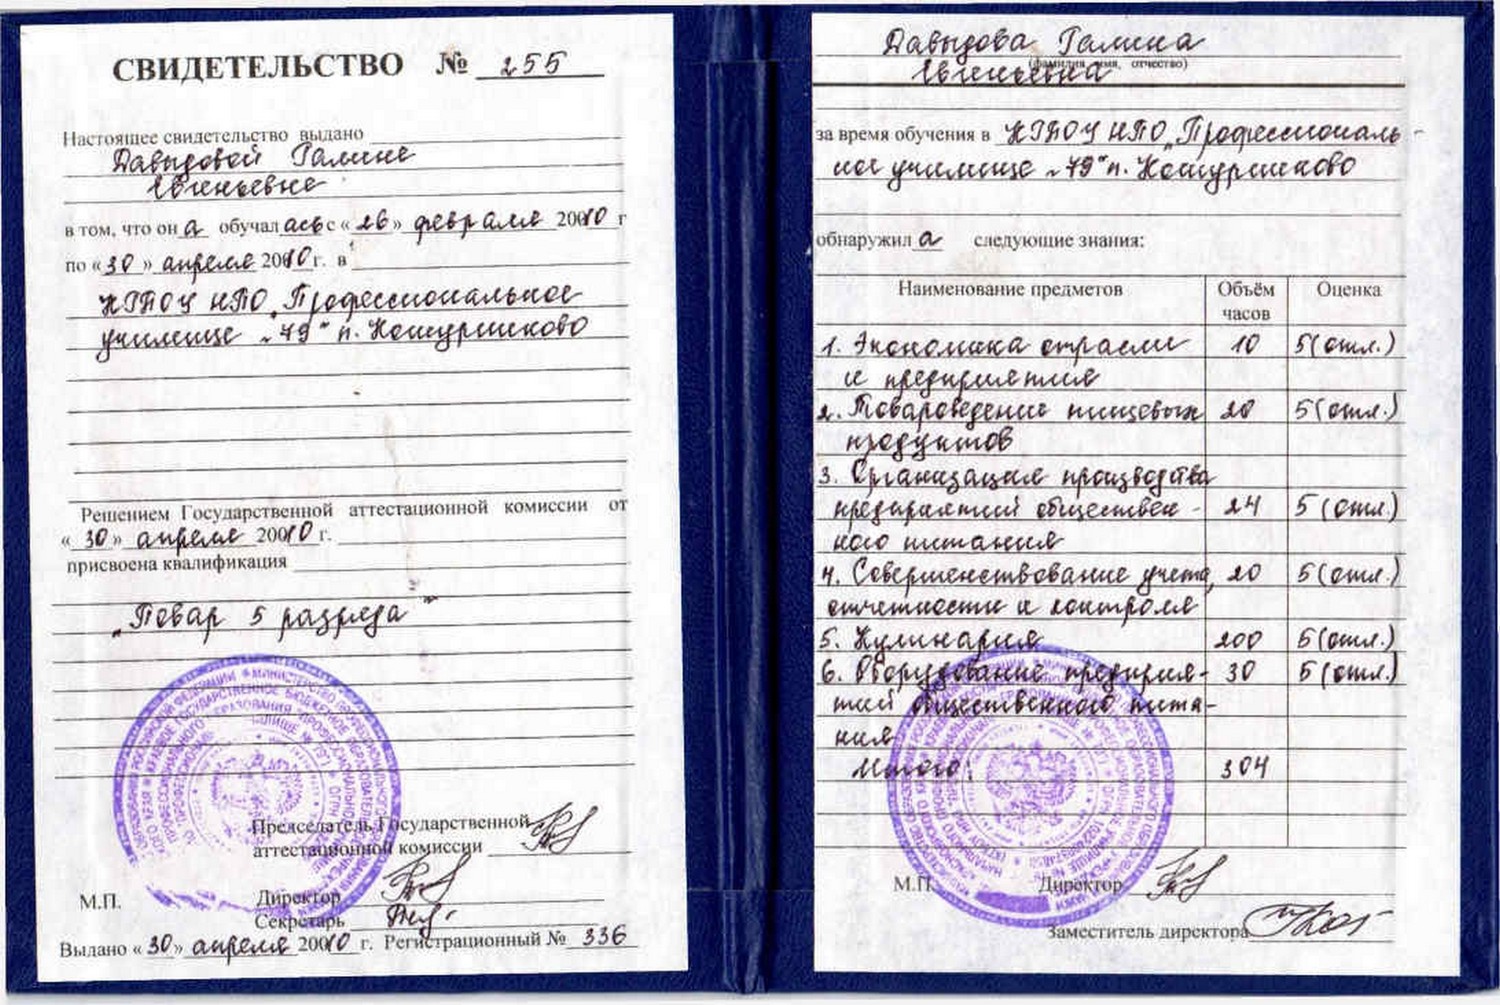 СВИДЕТЕЛЬСТВО № 255
Настоящее свидетельство выдано
Давыдовой Галине
Евгеньевне
в том, что он а обучал ась с « 26 » февраля 20010 г
по « 30 » апреля 20010 г. в
КГБОУ НПО „Профессиональное
училище № 79" п. Кошурниково
Решением Государственной аттестационной комиссии от
« 30 » апреля 20010 г.
присвоена квалификация
„Повар 5 разряда"
Председатель Государственной
аттестационной комиссии
М.П.
Директор
Секретарь
Выдано « 30 » апреля 20010 г. Регистрационный № 336
Давыдова Галина
(фамилия, имя, отчество)
Евгеньевна
за время обучения в КГБОУ НПО „Профессиональ-
ное училище № 79" п. Кошурниково
обнаружил а следующие знания:
Наименование предметов Объём часов Оценка
1. Экономика отрасли 10 5 (отл.)
и предприятия
2. Товароведение пищевых 20 5 (отл.)
продуктов
3. Организация производства
предприятий обществен- 24 5 (отл.)
ного питания
4. Совершенствование учета, 20 5 (отл.)
отчетности и контроля
5. Кулинария 200 5 (отл.)
6. Оборудование предприя- 30 5 (отл.)
тий общественного пита-
ния
Итого: 304
М.П. Директор
Заместитель директора